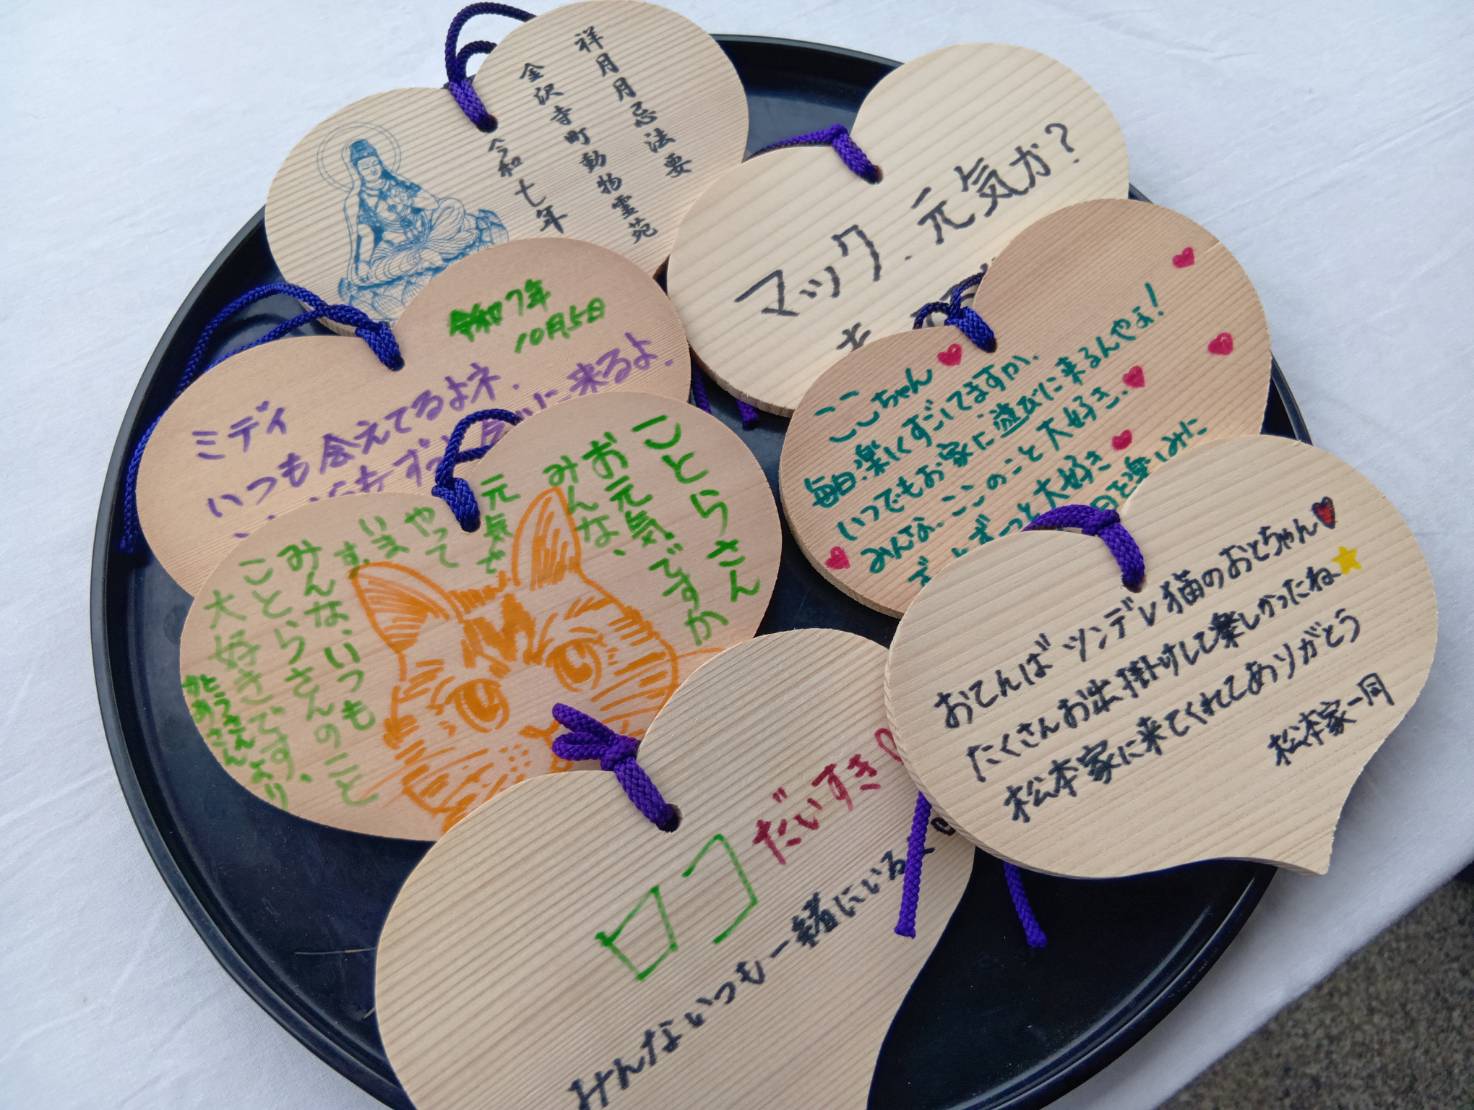 祥月月忌法要
金沢寺町動物霊苑
令和七年
マック、元気か?
令和7年
10月5日
ミディ
いつも会えてるよネ.
に来るよ.
ここちゃん
毎日楽しくすごしてますか.
いつでもお家に遊びに来るんやよ!
みんな、ここのこと大好き.
ずーっとずーっと大好き
ことらさん
お元気ですか
みんな、
元気で
やって
います。
みんないつも
ことらさんのこと
大好きです。
かとうさん
かあさんより
おてんば ツンデレ猫のおとちゃん
たくさんお出掛けして楽しかったね
松本家に来てくれてありがとう
松本家一同
ロコ だいすき
みんないつも一緒にいるよ